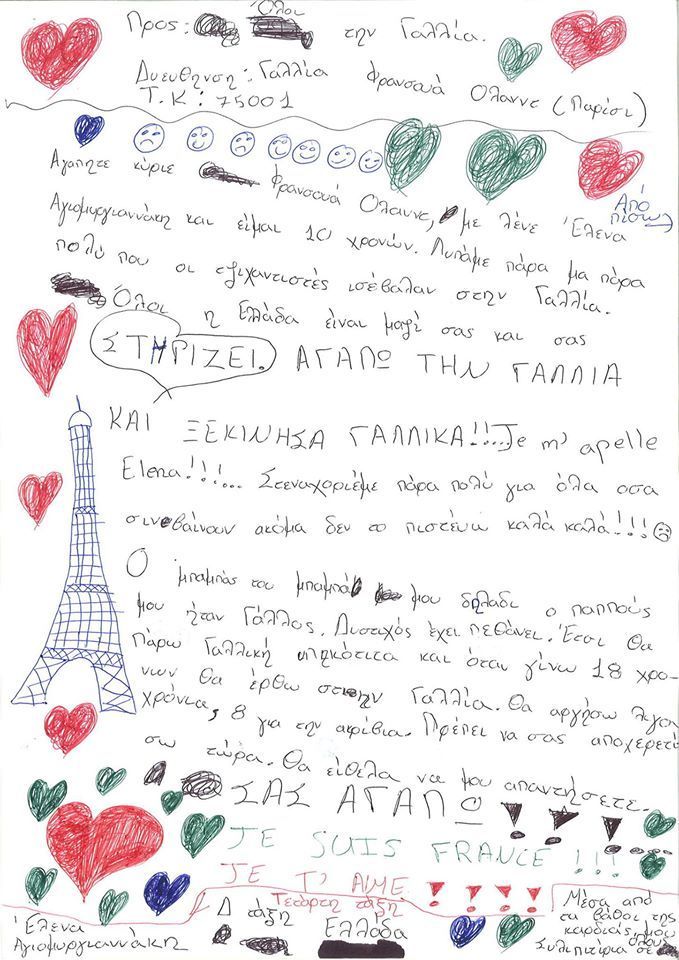 Όλοι
Προς: την Γαλλία.
Διευθηνση: Γαλλία Φρανσουά Ολαννε (Παρίσι)
Τ.Κ: 75001
Αγαπητε κύριε Φρανσουά Ολαννε, με λένε Έλενα
Από πίσω
Αγιομυργιαννάκη και είμαι 10 χρονών. Λυπάμε πάρα μα πάρα
πολύ που οι τζιχαντιστές ισέβαλαν στην Γαλλία.
Όλοι η Ελλάδα είναι μαζί σας και σας
ΣΤΗΡΙΖΕΙ. ΑΓΑΠΩ ΤΗΝ ΓΑΛΛΙΑ
ΚΑΙ ΞΕΚΙΝΗΣΑ ΓΑΛΛΙΚΑ!!...Je m' apelle
Elena!!!... Στεναχοριέμε πάρα πολύ για όλα οσα
σινεβαίνουν ακόμα δεν το πιστέυω καλά καλά!!!
Ο μπαμπάς του μπαμπά μου δηλαδι ο παππούς
μου ήταν Γάλλος. Δυστιχός έχει πεθάνει. Έτσι θα
πάρω Γαλλική υπηκότιτα και όταν γίνω 18 χρο-
νων θα έρθω στην Γαλλία. Θα αργήσω λιγα
χρόνια, 8 για την ακρίβια. Πρέπει να σας αποχερετί
σω τώρα. Θα είθελα να μου απαντήσετε.
ΣΑΣ ΑΓΑΠΩ!!!
JE SUIS FRANCE!!!
JE T' AIME!!!!
Έλενα
Αγιομυργιαννάκη
Δ τάξη
Τετάρτη τάξη
Ελλάδα
Μέσα από
τα βάθοι της
καρδιάς μου
Συλιπιτίρια σε όλους